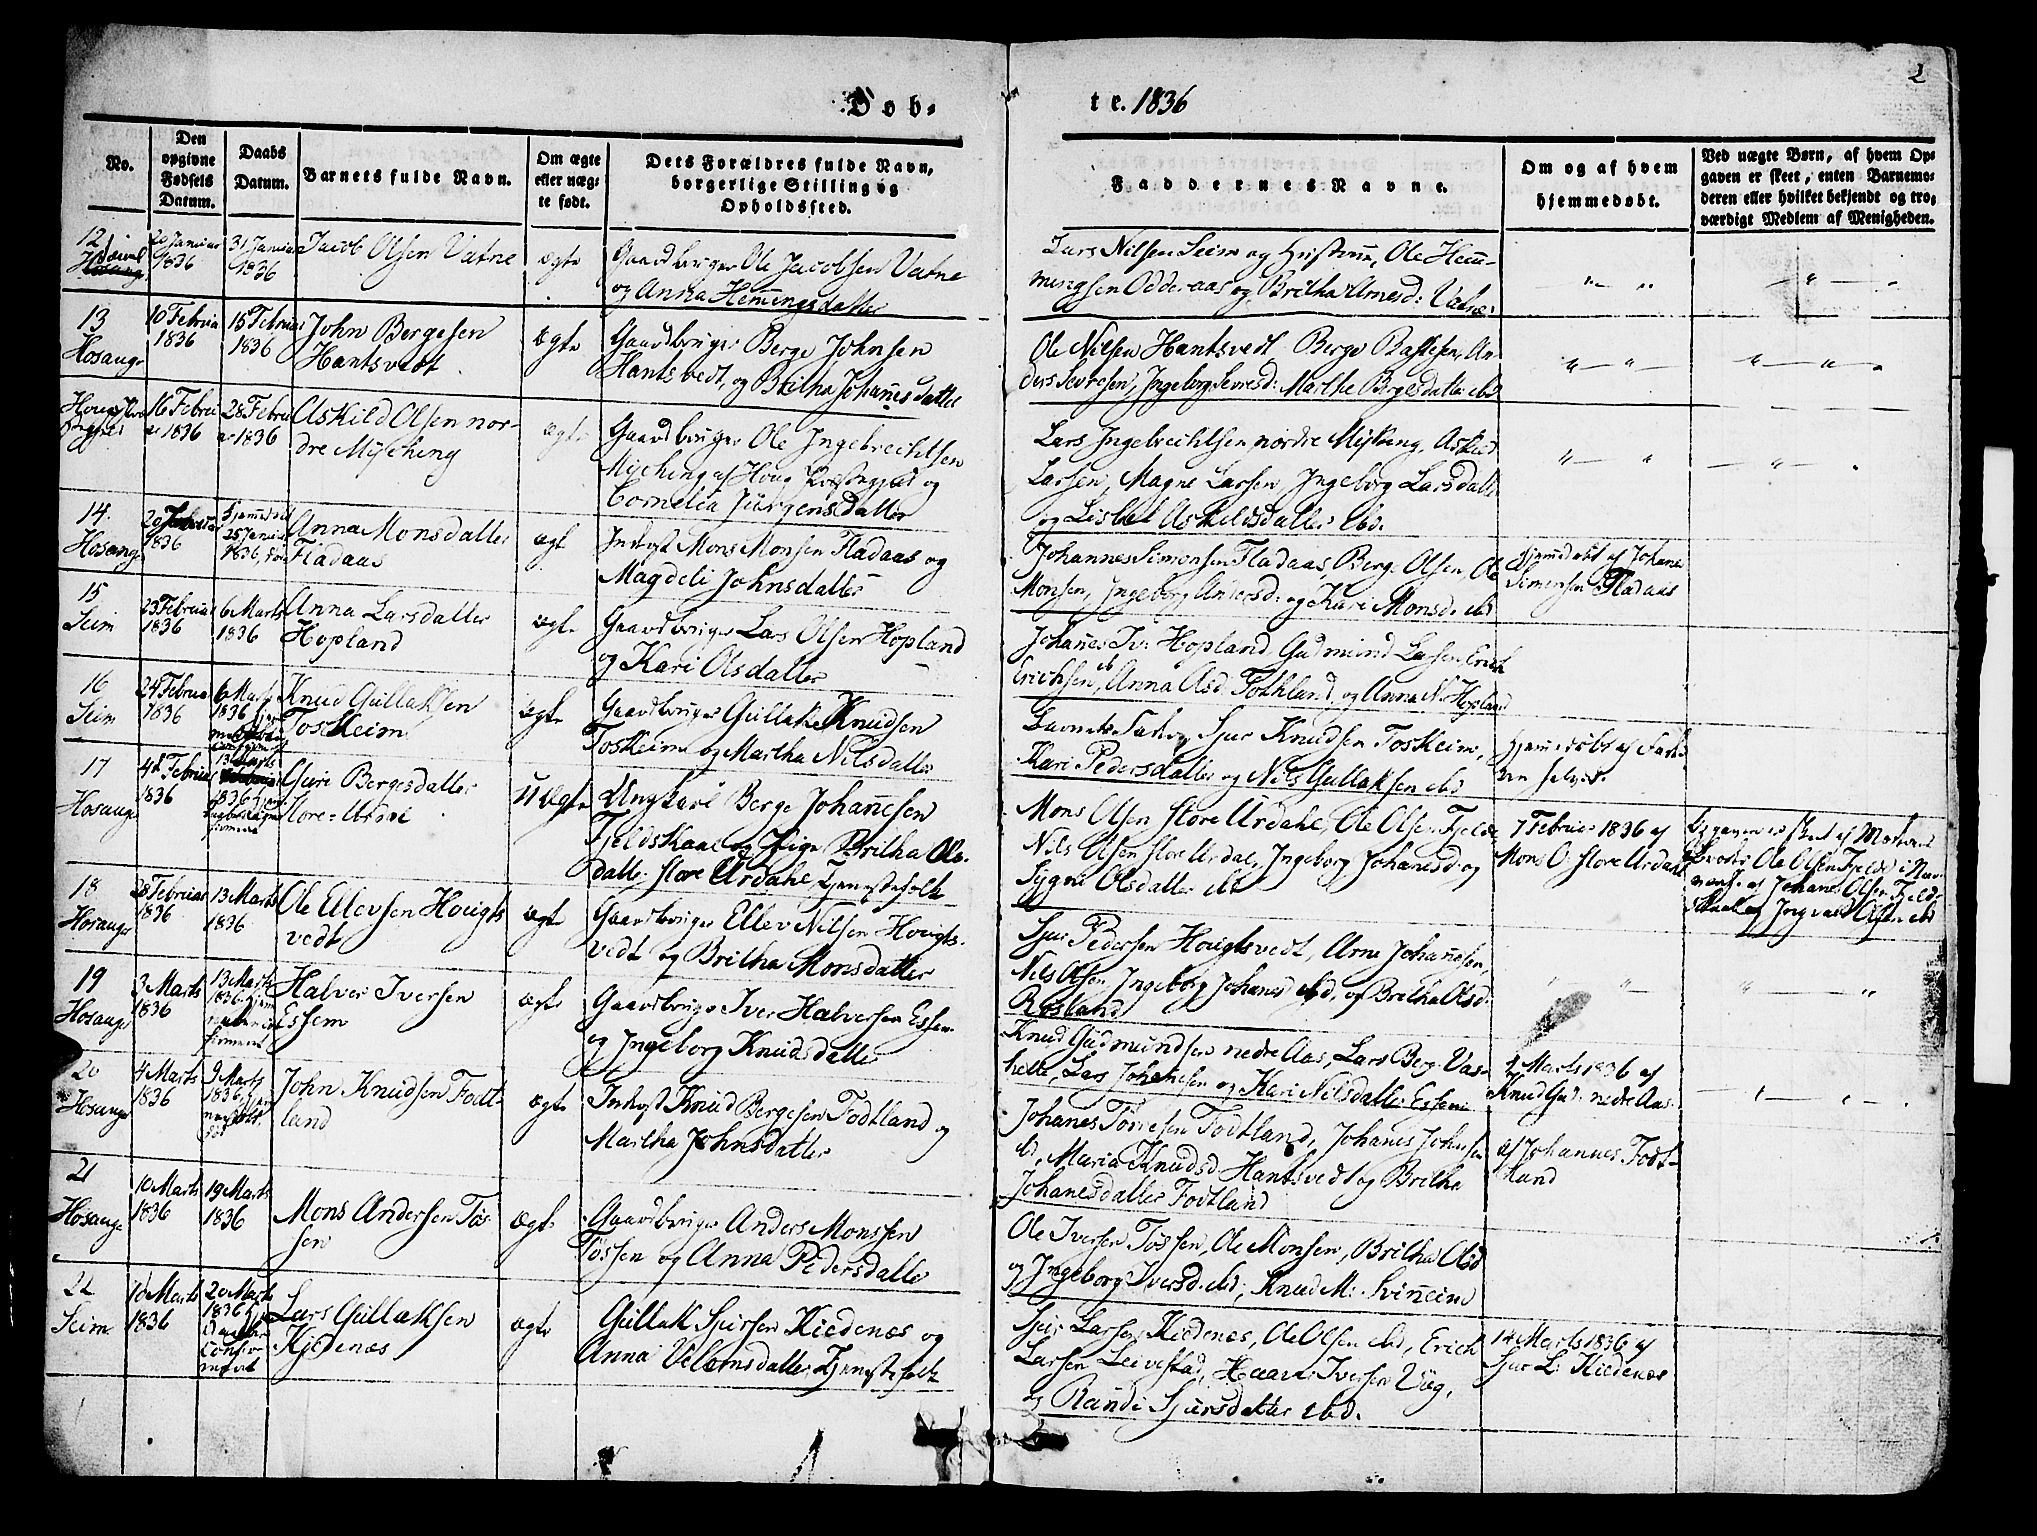 2
Døb-
te. 1836
No.
Den
opgivne
Fødsels
Datum.
Daabs
Datum.
Barnets fulde Navn.
Om ægte
eller uæg-
te født.
Dets Forældres fulde Navn,
borgerlige Stilling og
Opholdssted.
Faddernes Navne.
Om og af hvem
hjemmedøbt.
Ved uægte Børn, af hvem Op-
gaven er skeet, enten Barnemo-
deren eller hvilket bekjendt og tro-
værdigt Medlem af Menigheden.
12
20 Januar
1836
31 Januar
1836
Jacob Olsen Vatne
ægte
Gaardbruger Ole Jacobsen Vatne
og Anna Hemingsdatter
Lars Nilsen Seim og Hustrue, Ole Hem-
mingsen Odderaas og Britha Arnesd: Vatne:
13
Hosanger
10 Februar
1836
15 Februar
1836
John Bergesen
Hantsvedt
ægte
Gaardbruger Berge Johnsen
Hantsvedt, og Britha Johannesdatter
Ole Nilsen Hantsvedt, Berge
An-
ders Sevresen, Ingeborg Sevresd: Marthe Bergesdatter ibd
16 Febru
ar 1836
28 Febru
ar 1836
Askild Olsen nor-
dre Myching
ægte
Gaardbruger Ole Ingebrechtsen
Myching af Houg Præstegjeld og
Cornelia Jürgensdatter
Lars Ingebrechtsen nordre Myking, Askild
Larsen, Magne Larsen, Ingeborg Larsdatter
og Lisbet Askildsdatter ibd.
14.
Hosanger
20
1836
25 Januar
1836,
Anna Monsdatter
Fladaas
ægt
Inderst Mons Monsen Fladaas og
Magdeli Johnsdatter
Johannes Simonsen Fladaas, Berge Olsen, Ole
Monsen, Ingeborg Andersd: og Kari Monsd. ibd
Hjemmedøbt af Johanes
Simensen Fladaas
15
Seim
23 Februar
1836
6 Marts
1836
Anna Larsdatter
Hopland
ægte
Gaardbruger Lars Olsen Hopland
og Kari Olsdatter
Johannes Iv: Hopland, Gudmund Larsen, Erich
Erichsen ib, Anna Olsd. Fothland, og Anna N: Hopland
16
Seim
24 Februar
1836
6 Marts
1836
Knud Gullaksen
Toskeim
ægte
Gaardbruger Gullak Knudsen
Toskeim og Martha Nilsdatter
Barnets Fader, Sjur Knudsen Toskeim,
Kari Pedersdatter og Nils Gullaksen ibd
Hjemmedøbt af Fade
ren selver.
17
Hosanger
4de Februar
1836
13 Marts
1836
Guri Bergesdatter
Store-Urdal
uægte
Ungkarl Berge Johannesen
Fjeldskaal og Pige Britha Ols-
datter store Urdahl, Tjenestefolk
Mons Olsen store Urdahl, Ole Olsen Fjelde
Nils Olsen store Urdal, Ingeborg Johanesd: og
Sygni Olsdatter ibd
7 Februar 1836 af
Mons O: store Urdahl
Opgaven er skeet af Moderens
Broder Ole Olsen Fjelde i Nær
værelse af Johannes Olsen Fjeld-
skaal og Ingvald Olsen ibd
18
Hosanger
28 Februar
1836
13 Marts
1836
Ole Ellevsen Hougts
vedt
ægte
Gaardbruger Ellev Nilsen Hougts-
vedt og Britha Monsdatter
Sjur Pedersen Hougtsvedt, Arne Johannesen,
Nils Olsen, Ingeborg Johanesd ibd, og Britha Olsd:
Røsland
19
Hosanger
3 Marts
1836
13 Marts
1836
Halver Iversen
Essem
ægte
Gaardbruger Iver Halversen Essem
og Ingeborg Knudsdatter
Knud Gudmundsen nedre Aas, Lars Berg: Vas-
helle, Lars Johanesen og Kari Nilsdatter Essem
4 Marts 1836 af
Knud Gud: nedre Aas.
20
Hosanger
4 Marts
1836
9 Marts
1836
John Knudsen Fodt-
land
ægte
Inderst Knud Bergesen Fodtland og
Martha Johnsdatter
Johanes Torresen Fodtland, Johanes Johnsen
ibd, Maria Knudsd Hantsvedt og Britha
Johanesdatter Fodtland
af Johannes Fodt-
land
21
Hosanger
10 Marts
1836
19 Marts
1836
Mons Andersen Tøs-
sen
ægte
Gaardbruger Anders Monssen
Tøssen og Anna Pedersdatter
Ole Iversen Tøssen, Ole Monsen, Britha Olsd
og Ingeborg Iversd: ibd, Knud M: Svinneim
22
Seim
10 Marts
1836
20 Marts
1836
Lars Gullaksen
Kjedenæs
ægte
Gullak Sjursen Kiedenæs og
Anna Velomsdatter, Tjenestefolk
Sjur Larsen Kiedenæs, Ole Olsen ibd, Erich
Larsen Leivestad, Haar: Iversen Vüg,
og Randi Sjursdatter ibd.
14 Marts 1836 af
Sjur L. Kiedenæs